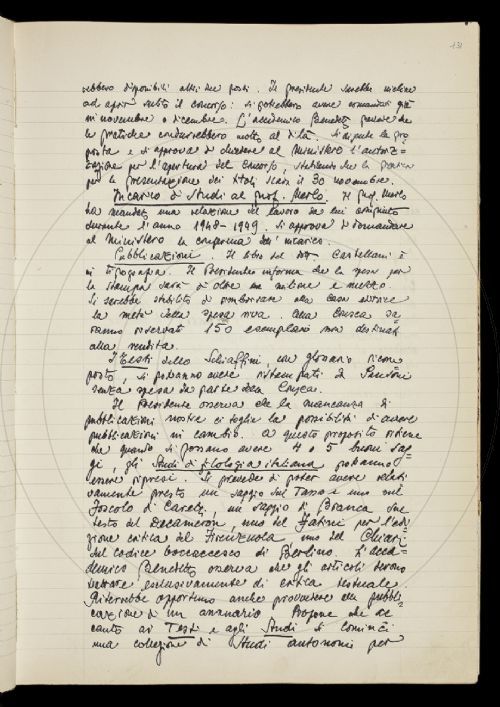 131
rebbero disponibili altri due posti. Il Presidente sarebbe incline
ad aprir subito il concorso: si potrebbero avere comandati già
in novembre o dicembre. L'accademico Benedetto pensa che
le pratiche condurrebbero molto al di là. Si ripete la pro
posta e si approva di chiedere al Ministero l'autoriz=
zazione per l'apertura del concorso, stabilendo che la
per la presentazione dei titoli sia il 30 novembre.
Incarico di Studi al prof. Merlo. Il prof. Merlo
ha mandato una relazione del lavoro da lui compiuto
durante l'anno 1948-1949. Si approva di domandare
al Ministero la conferma dell'incarico.
Pubblicazioni. Il libro del dott. Castellani è
in tipografia. Il Presidente informa che la spesa per
la stampa sarà di oltre un milione e mezzo.
Si sarebbe stabilito di rimborsare alla casa editrice
la metà della spesa viva. Alla Crusca sa
ranno riservati 150 esemplari non destinati
alla vendita.
I Testi dello Schiaffini, con glossario ricom
posto, si potranno avere ristampati da Sansoni
senza spesa da parte della Crusca.
Il Presidente osserva che la mancanza di
pubblicazioni nostre ci toglie la possibilità di avere
pubblicazioni in cambio. A questo proposito ritiene
che quando si possano avere 4 o 5 buoni sag=
gi, gli Studi di filologia italiana potranno
essere ripresi. Si prevede di poter avere relati
vamente presto un saggio sul Tasso e uno sul
Foscolo di Caretti, un saggio di Branca sul
testo del Decameron, uno del Fatini per l'edi
zione critica del Firenzuola, uno del Chiari
sul codice boccaccesco di Berlino. L'acca=
demico Benedetto osserva che gli articoli devono
vertere esclusivamente di critica testuale.
Riterrebbe opportuno anche provvedere alla pubbli=
cazione di un annuario. Propone che ac
canto ai Testi e agli Studi si cominci
una collezione di Studi autonomi per